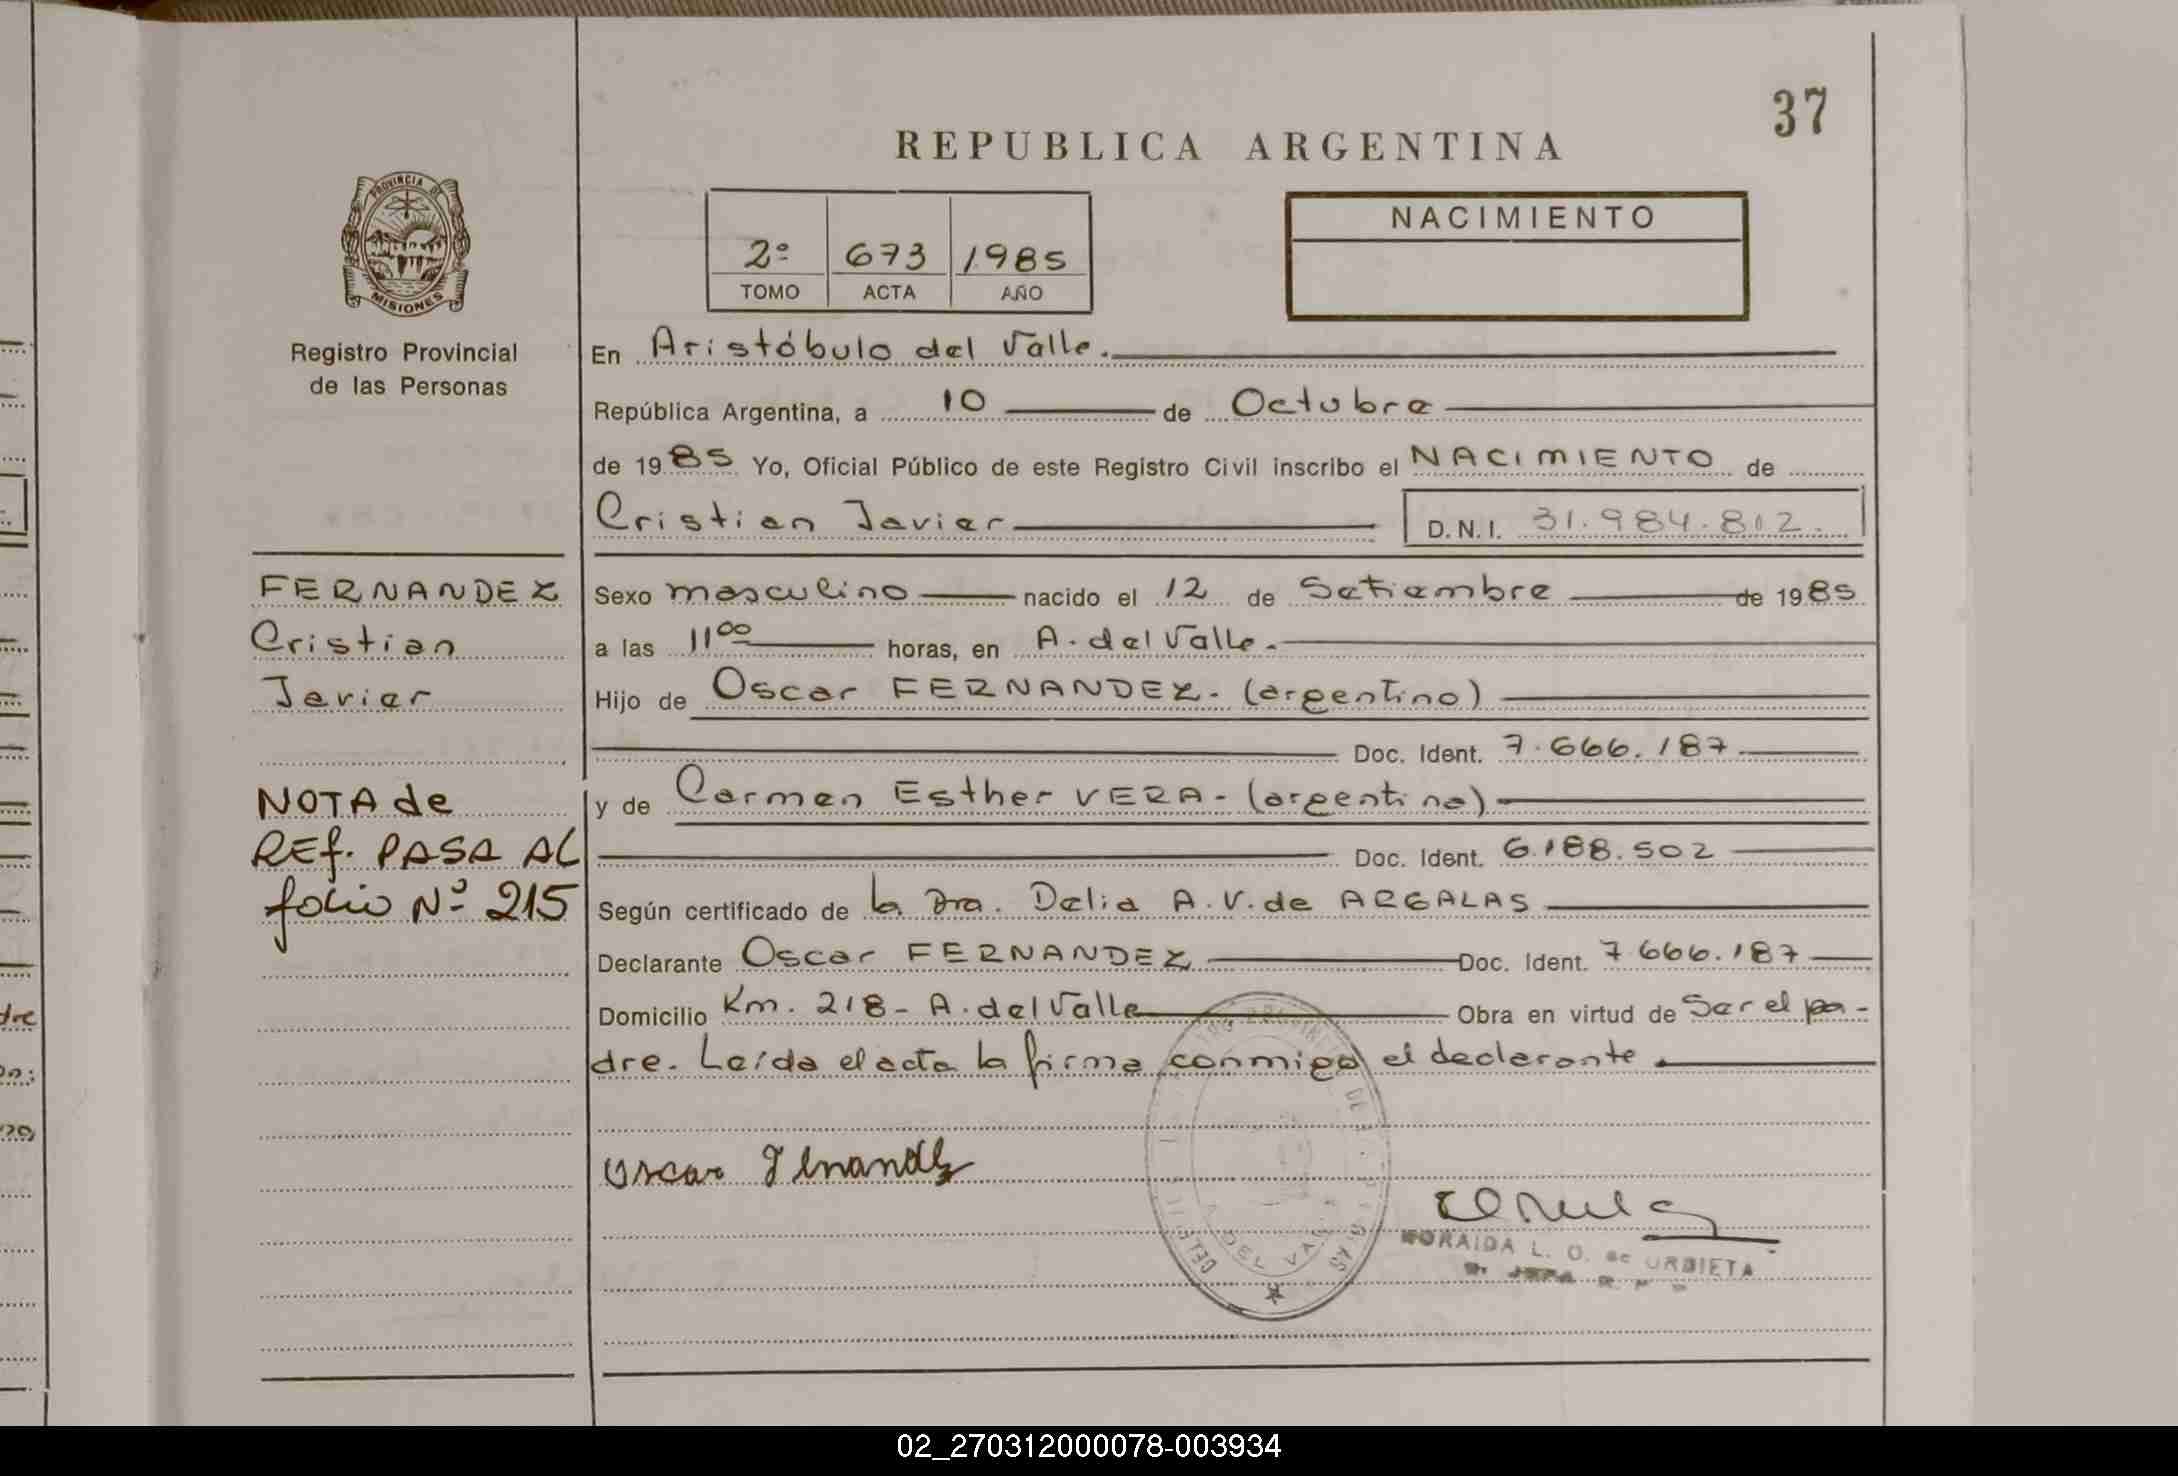 37
REPUBLICA ARGENTINA
PROVINCIA DE
MISIONES
Registro Provincial
de las Personas
2º 673 1985
TOMO ACTA AÑO
NACIMIENTO
En Aristóbulo del Valle.
República Argentina, a 10 de Octubre
de 1985 Yo, Oficial Público de este Registro Civil inscribo el NACIMIENTO de
Cristian Javier D.N.I. 31.984.812.
FERNANDEZ
Cristian
Javier
NOTA de
REf. PASA AL
folio Nº 215
Sexo masculino nacido el 12 de Setiembre de 1985
a las 11 00 horas, en A. del Valle.
Hijo de Oscar FERNANDEZ. (argentino)
Doc. Ident. 7.666.187
y de Carmen Esther VERA - (argentina)
Doc. Ident. 6.188.502
Según certificado de la Dra. Delia A. V. de ARGALAS
Declarante Oscar FERNANDEZ Doc. Ident. 7.666.187
Domicilio Km. 218 - A. del Valle Obra en virtud de Ser el pa-
dre. Leída el acta la firma conmigo el declarante.
Oscar Fernandez
NORAIDA L. O. de URBIETA
dre
02_270312000078-003934